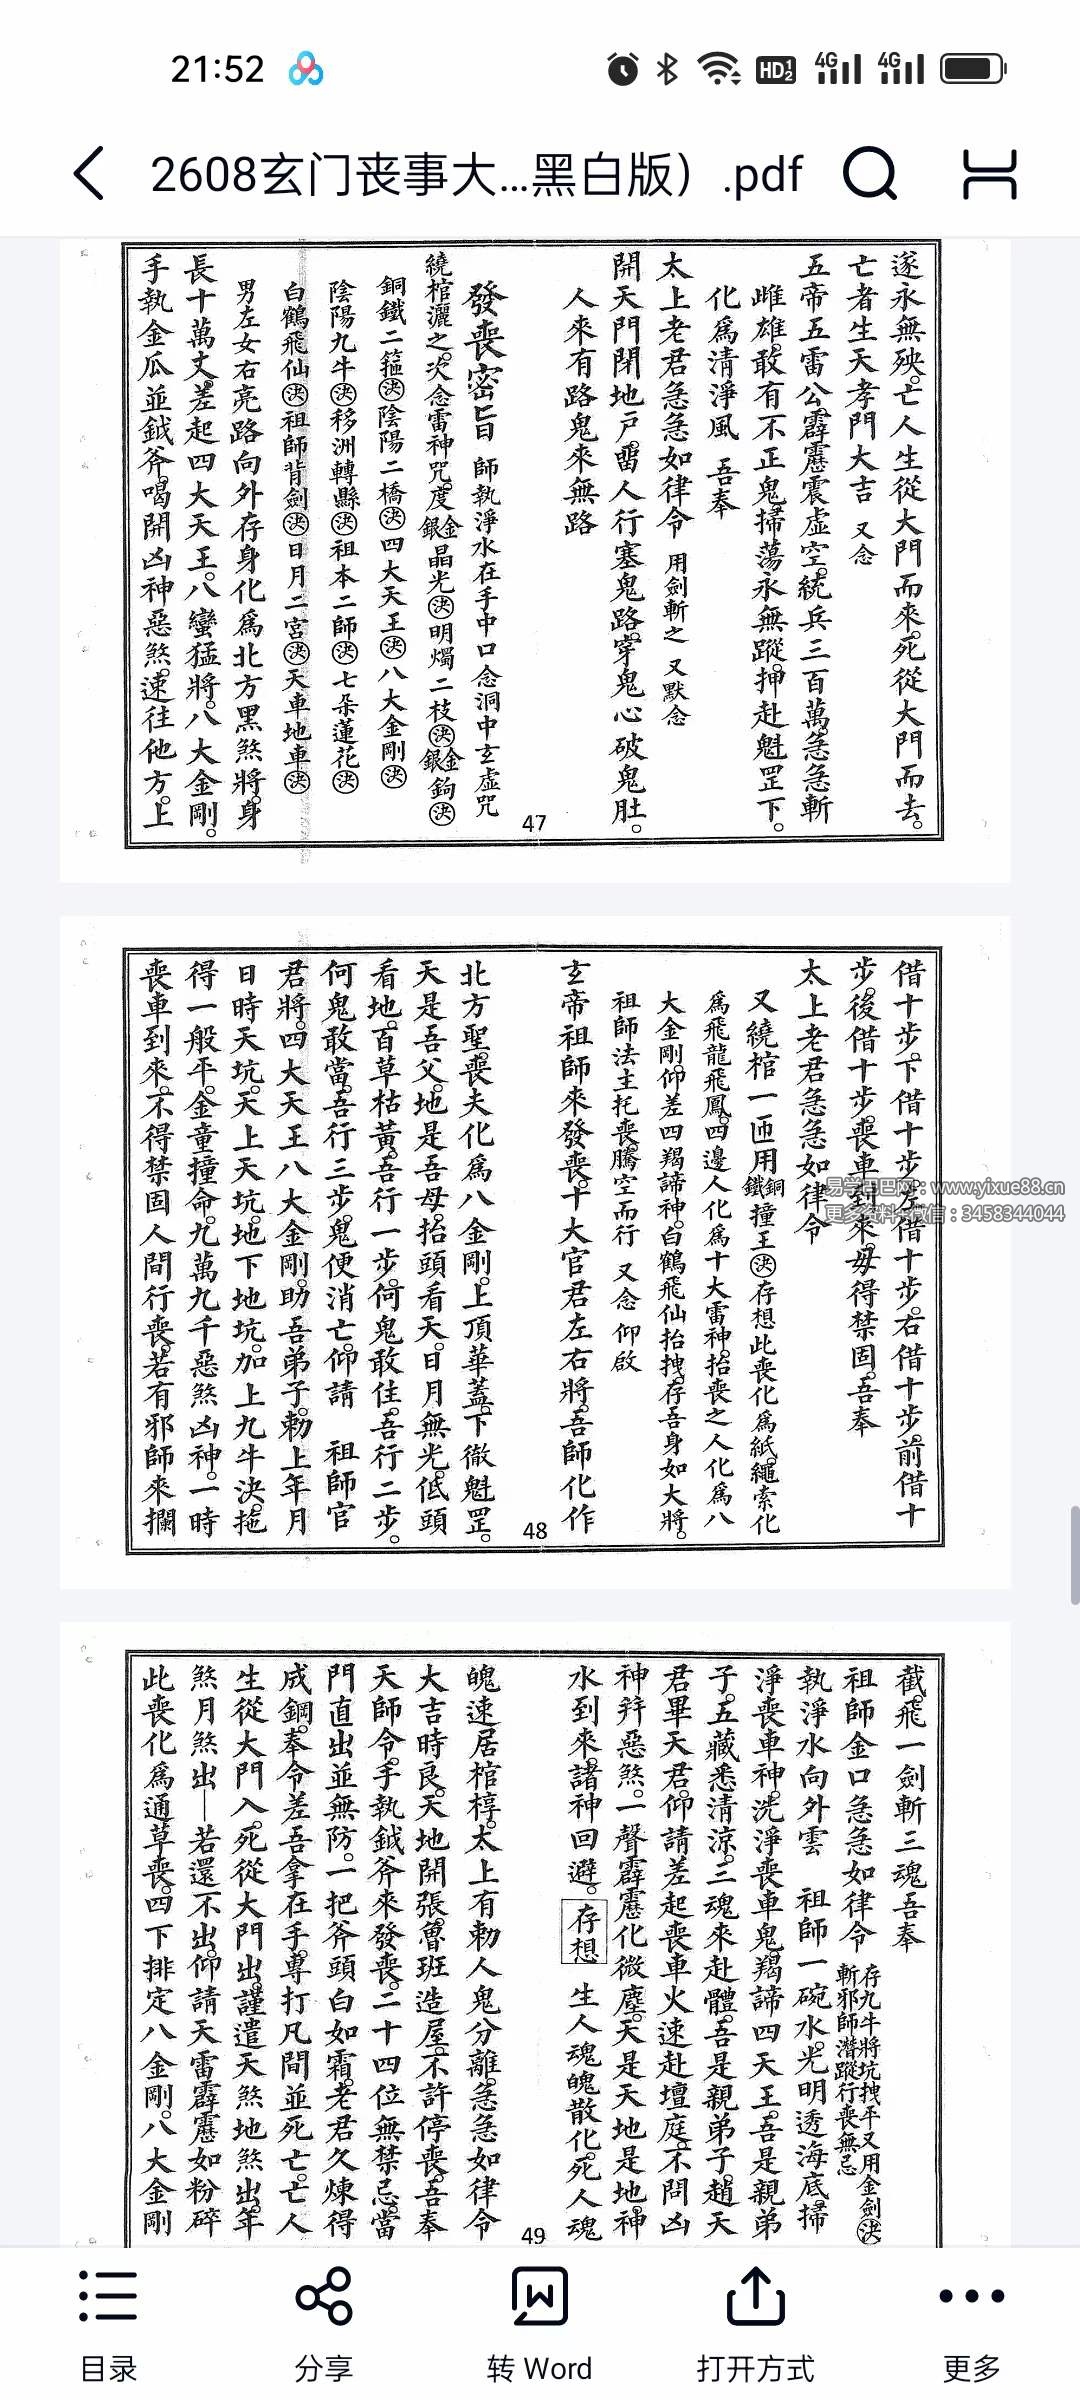 21:52
HD 1 2
4G
4G
2608玄门丧事大...黑白版）.pdf
遂永無殃。亡人生從大門而來。死從大門而去。
亡者生天孝門大吉 又念
五帝五雷公霹靂震虛空。統兵三百萬。急急斬
雌雄。敢有不正鬼。掃蕩永無蹤。押赴魁罡下。
化為清淨風 吾奉
太上老君急急如律令 用劍斬之 又默念
開天門閉地户。畱人行塞鬼路。穿鬼心破鬼肚。
人來有路鬼來無路
發喪密旨 師執淨水在手中口念洞中玄虛咒
繞棺灑之。次念雷神咒。度金銀晶光㊋明燭二枝㊋金銀鉤㊋
銅鐵二箍㊋陰陽二橋㊋四大天王㊋八大金剛㊋
陰陽九牛㊋移洲轉縣㊋祖本二師㊋七朵蓮花㊋
白鶴飛仙㊋祖師背劍㊋日月二宮㊋天車地車㊋
男左女右亮路向外存身化為北方黑煞將。身
長十萬丈。差起四大天王。八蠻猛將。八大金剛。
手執金瓜並鉞斧。喝開凶神惡煞。速往他方。上
47
借十步。下借十步。左借十步。右借十步。前借十
步。後借十步。喪車到來。毋得禁固。吾奉
太上老君急急如律令
又繞棺一匝用銅鐵撞王㊋存想此喪化為紙。繩索化
為飛龍飛鳳。四邊人化為十大雷神。抬喪之人化為八
大金剛。仰差四羯諦神。白鶴飛仙抬拽。存吾身如大將。
祖師法主托喪。騰空而行 又念 仰啟
玄帝祖師來發喪。十大官君左右將。吾師化作
北方聖。喪夫化為八金剛。上頂華蓋。下徹魁罡。
天是吾父。地是吾母。抬頭看天。日月無光。低頭
看地。百草枯黃。吾行一步。何鬼敢住。吾行二步。
何鬼敢當。吾行三步。鬼便消亡。仰請 祖師官
君將。四大天王八大金剛。助吾弟子。勅上年月
日時天坑。天上天坑。地下地坑。加上九牛決。拖
得一般平。金童撞命。九萬九千惡煞凶神。一時
喪車到來。不得禁固人間行喪。若有邪師來攔
48
易学巴巴网：www.yixue88.cn
更多资料+微信：3458344044
截。飛一劍斬三魂吾奉
祖師金口急急如律令 存九牛將坑拽平又用金劍㊋斬邪師潛蹤行喪無忌
執淨水向外雲 祖師一碗水。光明透海底。掃
淨喪車神。洗淨喪車鬼。羯諦四天王。吾是親弟
子。五藏悉清涼。三魂來赴體。吾是親弟子。趙天
君畢天君。仰請差起喪車火速赴壇庭。不問凶
神并惡煞。一聲霹靂化微塵。天是天地是地。神
水到來。諸神回避。存想 生人魂魄散化。死人魂
魄速居棺椁。太上有勅人鬼分離。急急如律令
大吉時良。天地開張。魯班造屋。不許停喪。吾奉
天師令。手執鉞斧來發喪。二十四位無禁忌。當
門直出並無防。一把斧頭白如霜。老君久煉得
成鋼。奉令差吾拿在手。專打凡間並死亡。亡人
生從大門入。死從大門出。謹遣天煞地煞出。年
煞月煞出—若還不出。仰請天雷霹靂如粉碎
此喪化為通草喪。四下排定八金剛。八大金剛
49
目录
分享
转 Word
打开方式
更多